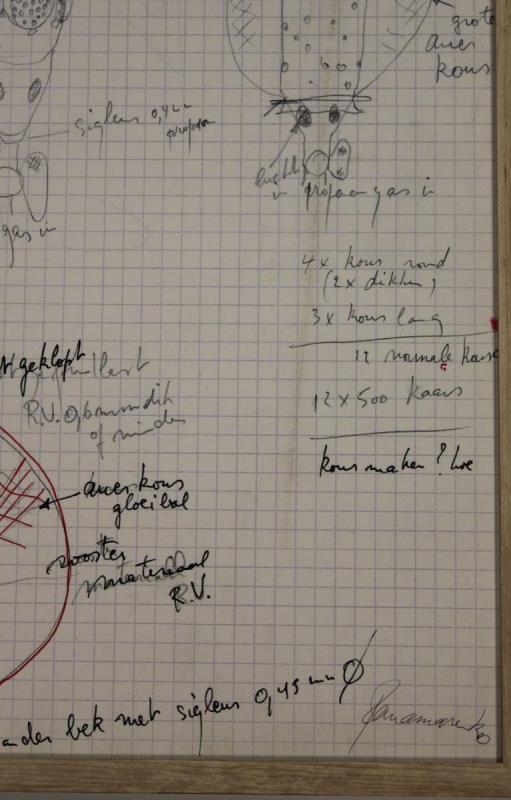 grote
auer
kous
sigleur 0,4 mm
propaan
lucht
in propaangas in
gas in
4x kous rond
(2x dikker)
3x kous lang
12 normale kous
12 x 500 kaars
kous maken? hoe
geklopt
R.V. 0,6 mm dik
of minder
auerkous
gloeibol
rooster
materiaal
R.V.
ander bek met sigleur 0,45 mm Ø
Panamarenko